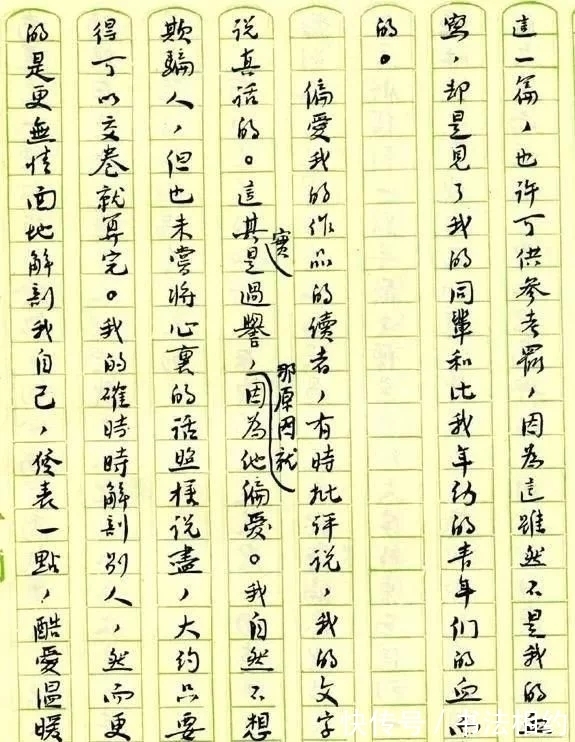 這一篇，也許可供參考罷，因為這雖然不是我的血
寫，却是見了我的同輩和比我年幼的青年們的血而
的。
偏愛我的作品的讀者，有時批評說，我的文字
說真話的。這其實是過譽，那原因就因為他偏愛。我自然不想
欺騙人，但也未嘗將心裏的話照樣說盡，大約只要
得可以交卷就算完。我的確時時解剖別人，然而更
的是更無情面地解剖我自己，發表一點，酷愛溫暖
快传号